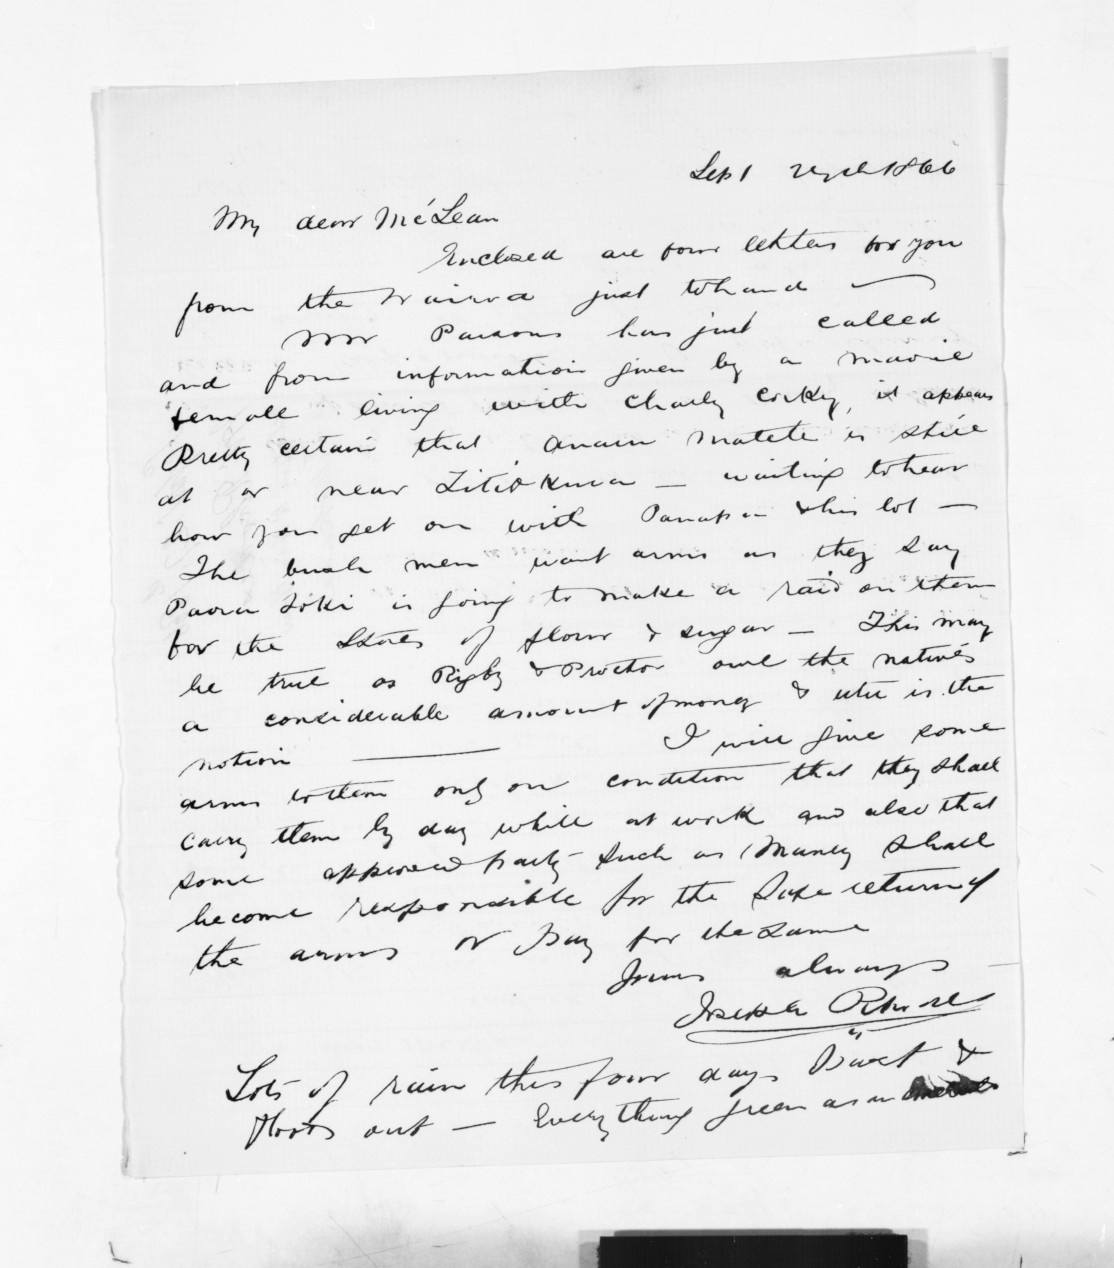 Sept 1866
My dear McLean
Enclosed are four letters for you
from the Wairoa just to hand
Mr Parsons has just called
and from information given by a maorie
female living with Charley Corky, it appears
Pretty certain that Anaru Matete is still
at or near Titiokura — waiting to hear
how you get on with Panapa & his lot —
The bush men want arms as they say
Paora Toki is going to make a raid on them
for the Stores of flour & sugar — This may
be true as Rigby & Proctor owe the natives
a considerable amount of money & utu is the
notion — I will give some
arms to them only on condition that they shall
carry them by day while at work and also that
some approved party such as Maney shall
become responsible for the safe return of
the arms or Pay for the same
Yours always
Joseph Rhodes
Lots of rain this four days Past &
floods out — Everything green as an